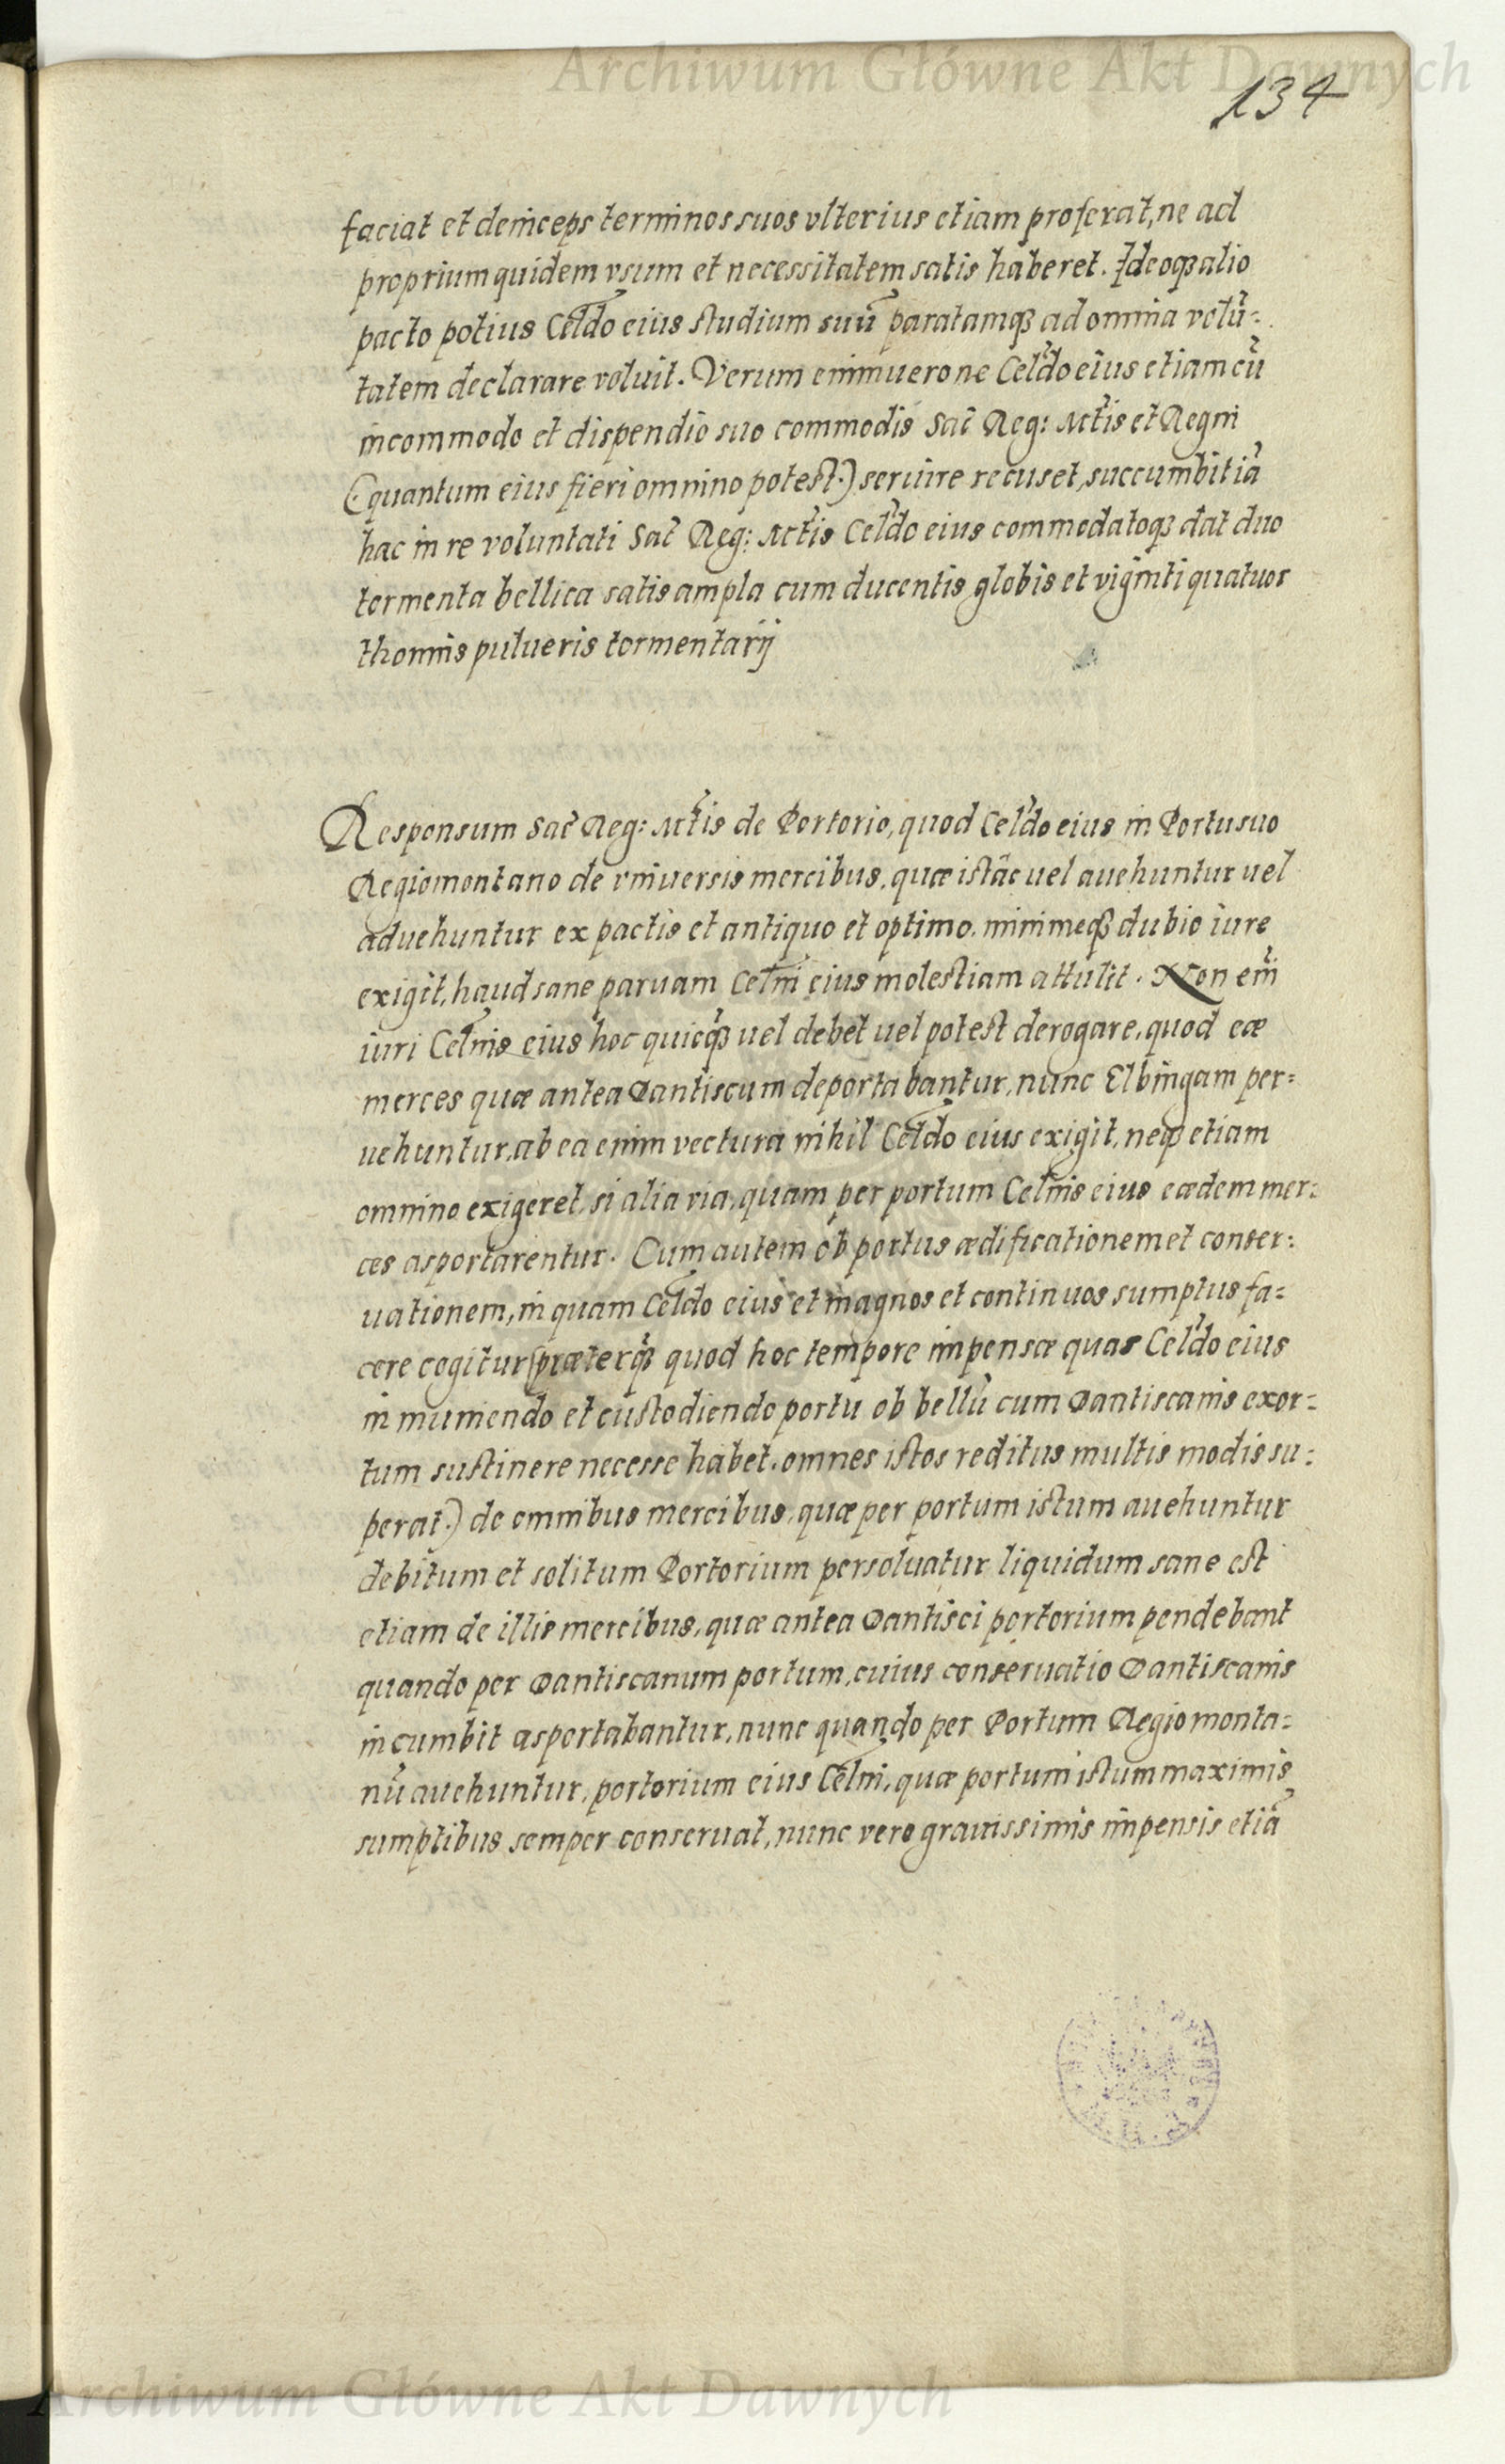 Archiwum Główne Akt Dawnych
134
faciat et deinceps terminos suos vlterius etiam proferat, ne ad
proprium quidem vsum et necessitatem satis haberet. Ideoqȝ alio
pacto potius Celdo eius studium suũ paratamqȝ ad omnia volũ=
tatem declarare voluit. Verum enimuero ne Celdo eius etiam cũ
incommodo et dispendio suo commodis Sac̃ Reg: Mtis et Regni
(quantum eius fieri omnino potest.) seruire recuset, succumbit iã
hac in re voluntati Sac̃ Reg: Mtis Celdo eius commodatoqȝ dat duo
tormenta bellica satis ampla cum ducentis globis et viginti quatuor
thonnis pulueris tormentarij
Responsum Sac̃ Reg: Mtis de Portorio, quod Celdo eius in Portu suo
Regiomontano de vniuersis mercibus, quæ istâc uel auehuntur uel
aduehuntur ex pactis et antiquo et optimo, minimeqȝ dubio iure
exigit, haud sane paruam Celni eius molestiam attulit. Non em̃
iuri Celnis eius hoc quicqȝ uel debet uel potest derogare, quod eæ
merces quæ antea Dantiscum deportabantur, nunc Elbingam per=
uehuntur, ab ea enim vectura nihil Celdo eius exigit, neqȝ etiam
omnino exigeret, si alia via, quam per portum Celnis eius eædem mer=
ces asportarentur. Cum autem ob portus ædificationem et conser=
uationem, in quam Celdo eius et magnos et continuos sumptus fa=
cere cogitur (præterqȝ quod hoc tempore impensæ quas Celdo eius
in muniendo et custodiendo portu ob bellũ cum Dantiscanis exor=
tum sustinere necesse habet, omnes istos reditus multis modis su=
perat.) de omnibus mercibus, quæ per portum istum auehuntur
debitum et solitum Portorium persoluatur liquidum sane est
etiam de illis mercibus, quæ antea Dantisci portorium pendebant
quando per Dantiscanum portum, cuius conseruatio Dantiscanis
incumbit asportabantur, nunc quando per Portum Regiomonta=
nũ auehuntur, portorium eius Celni, quæ portum istum maximis
sumptibus semper conseruat, nunc vero grauissimis impensis etiã
Archiwum Główne Akt Dawnych